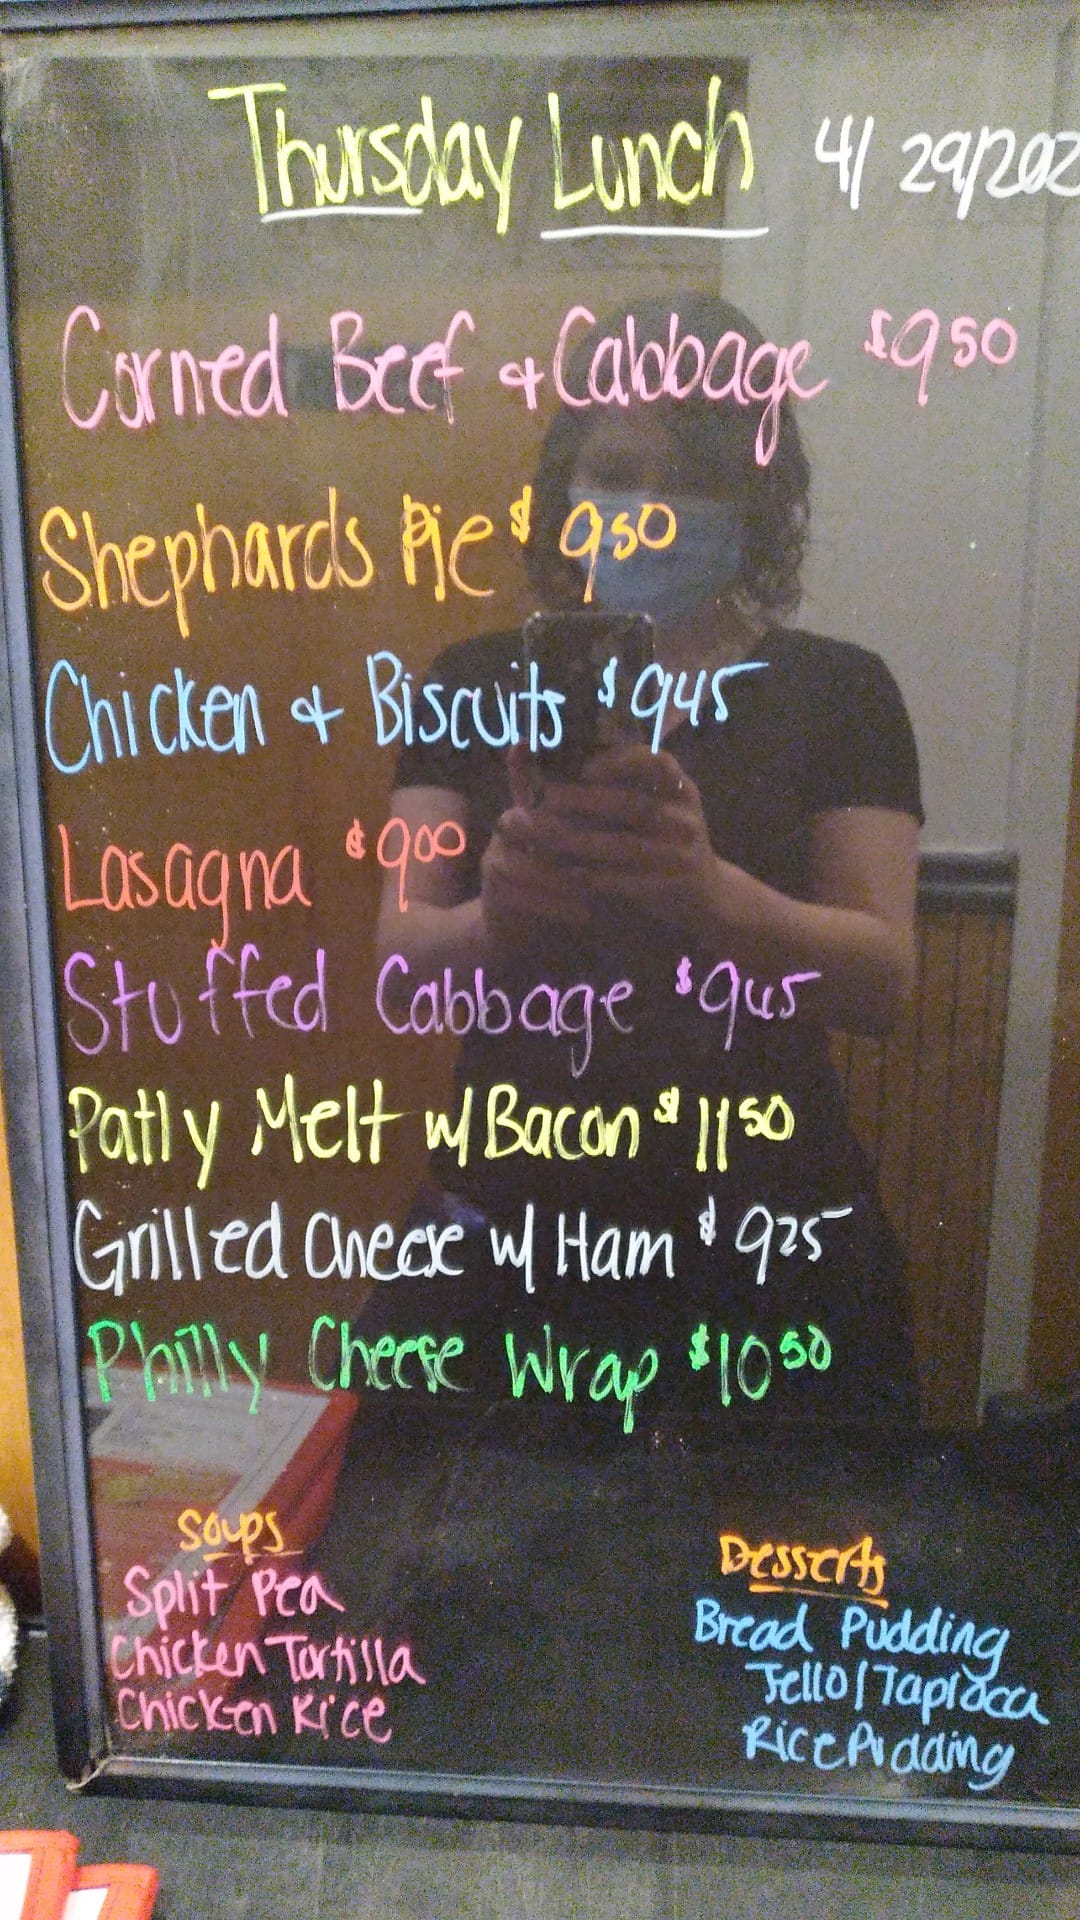 Thursday Lunch 4/29/202
Corned Beef & Cabbage $9.50
Shephards Pie $9.50
Chicken & Biscuits $9.45
Lasagna $9.00
Stuffed Cabbage $9.45
Patty Melt w/ Bacon $11.50
Grilled Cheese w/ Ham $9.25
Philly Cheese Wrap $10.50
Soups
Split Pea
Chicken Tortilla
Chicken Rice
Desserts
Bread Pudding
Jello/Tapioca
Rice Pudding